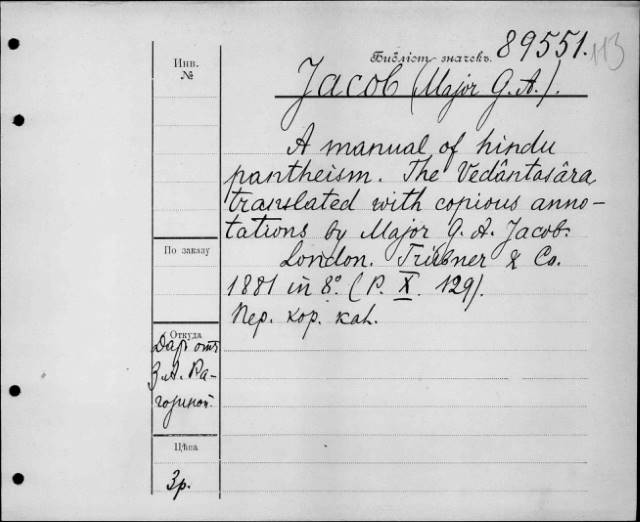 Инв.
№
Библіот. значекъ. 89551. 113
Jacob (Major G. A.).
A manual of hindu
pantheism. The Vedântasâra
translated with copious anno-
tations by Major G. A. Jacob.
London. Trübner & Co.
1881 in 8º. (P. X. 129).
Пер. кор. кал.
По заказу
Откуда
Даръ отъ
З. А. Ра-
гозиной.
Цѣна
3р.